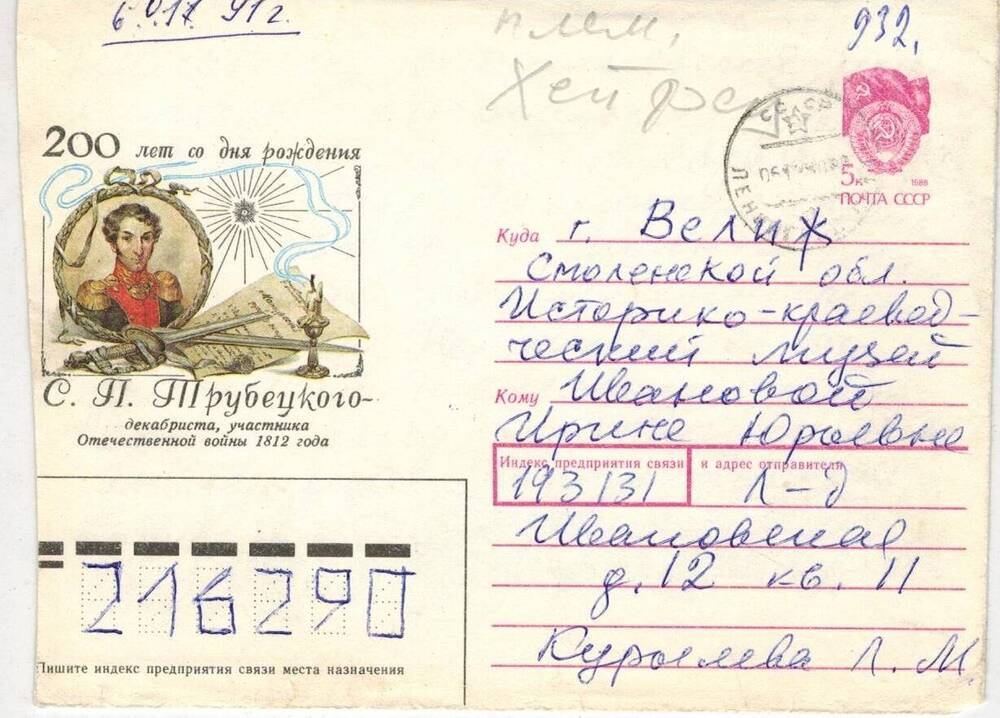 6.01? 91 г.
932,
плем,
Хейфец
200 лет со дня рождения
СССР
5к 1988
ПОЧТА СССР
Куда г. Велиж
Смоленской обл.
Историко-краевед-
ческий музей
Кому Ивановой
Ирине Юрьевне
С. П. Трубецкого-
декабриста, участника
Отечественной войны 1812 года
Индекс предприятия связи и адрес отправителя
193131 Л-д
Ивановская
д. 12 кв. 11
Курылева Л. М.
216290
Пишите индекс предприятия связи места назначения